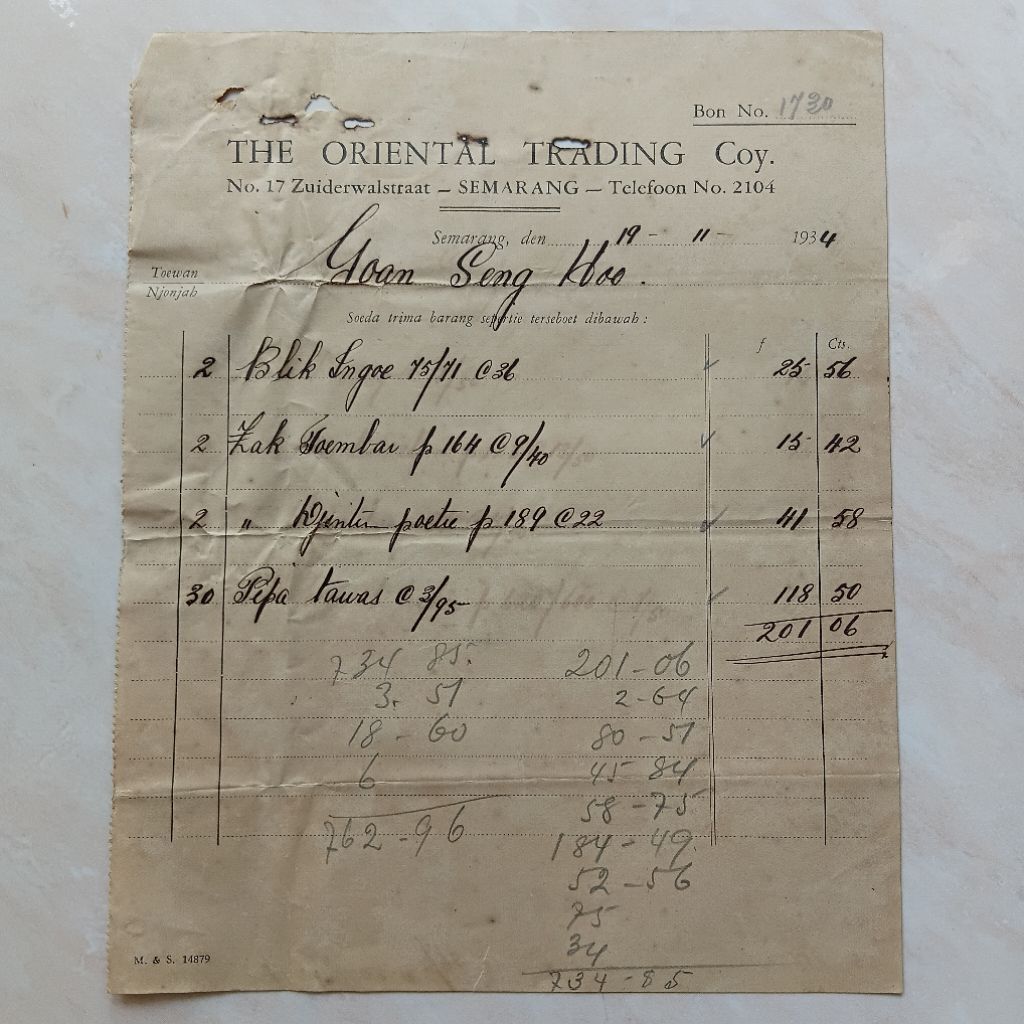 Bon No. 1730
THE ORIENTAL TRADING Coy.
No. 17 Zuiderwalstraat — SEMARANG — Telefoon No. 2104
Semarang, den 19 - 11 - 1934
Toewan
Njonjah
Goan Seng Hoo.
Soeda trima barang sepertie terseboet dibawah :
f Cts.
2 Blik Ingoe 75/71 @ 36 25 56
2 Zak Toembar p 164 @ 9/40 15 42
2 " Djinten poetie p 189 @ 22 41 58
30 Pepa tawas @ 3/95 118 50
201 06
734 85. 201-06
3. 51 2-64
18 - 60 80-51
6 45-84
58-75
762-96 184-49.
52-56
75
34
734-85
M. & S. 14879